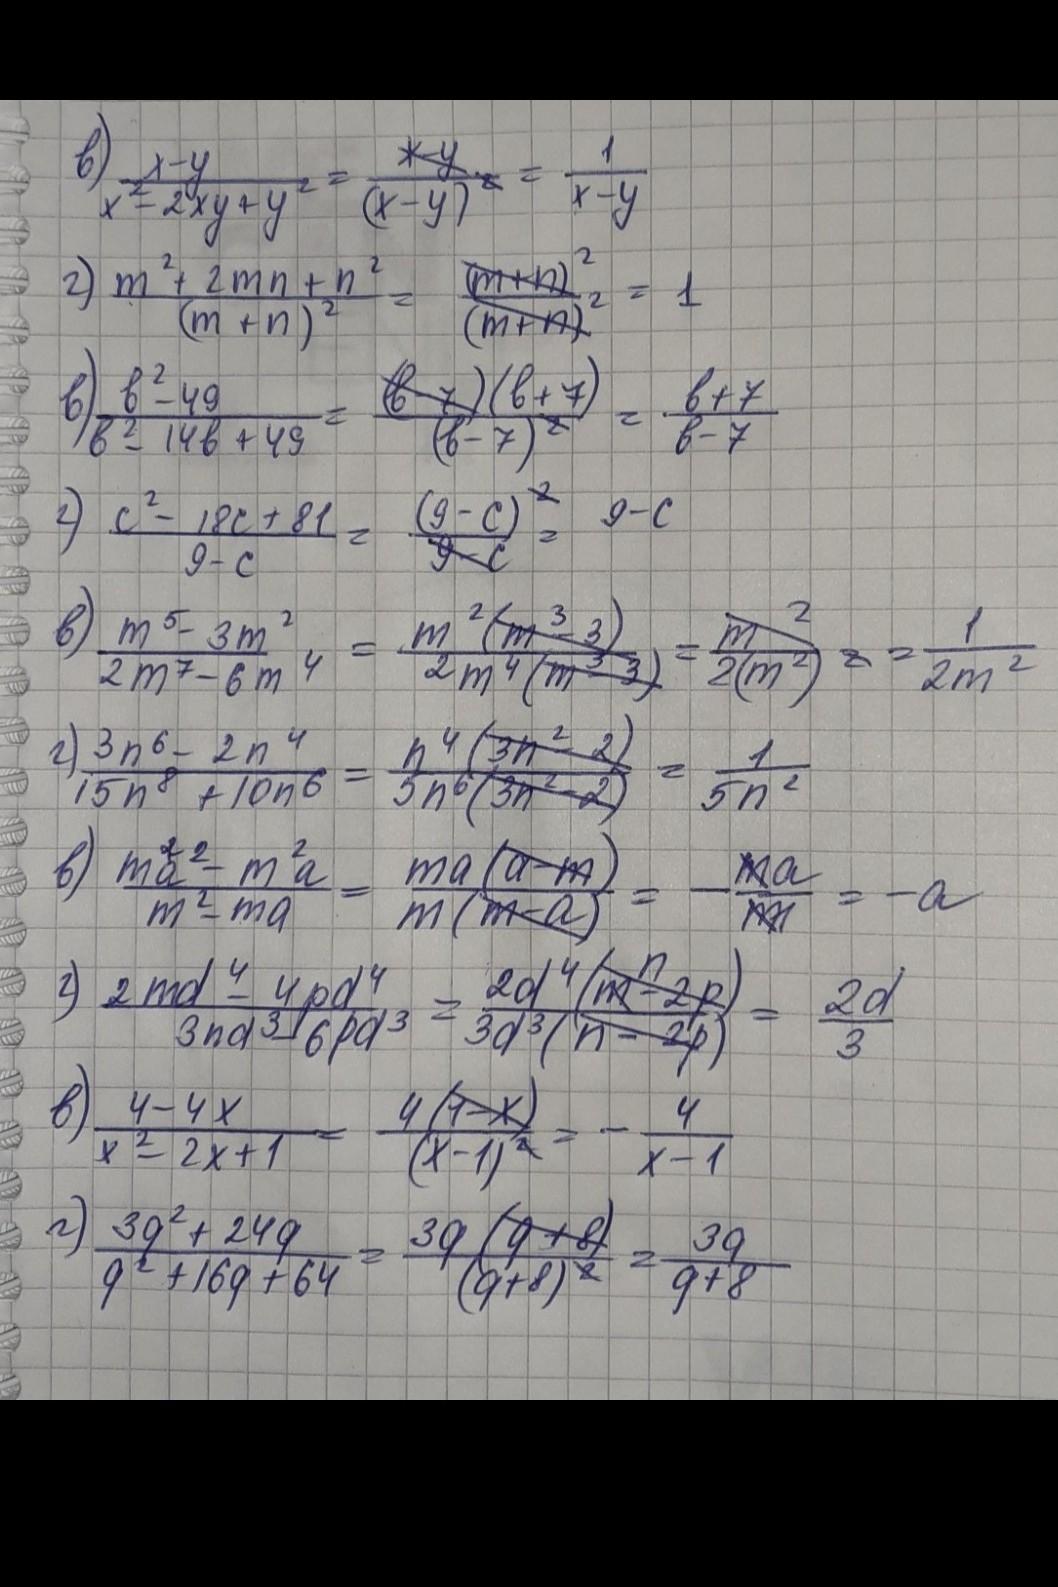 в) (x-y)/(x²-2xy+y²) = (x-y)/(x-y)² = 1/(x-y)
г) (m²+2mn+n²)/(m+n)² = (m+n)²/(m+n)² = 1
в) (b²-49)/(b²-14b+49) = (b-7)(b+7)/(b-7)² = (b+7)/(b-7)
г) (c²-18c+81)/(9-c) = (9-c)²/(9-c) = 9-c
в) (m⁵-3m²)/(2m⁷-6m⁴) = m²(m³-3)/2m⁴(m³-3) = m²/2(m²)² = 1/2m²
г) (3n⁶-2n⁴)/(15n⁸+10n⁶) = n⁴(3n²-2)/5n⁶(3n²-2) = 1/5n²
в) (ma²-m²a)/(m²-ma) = ma(a-m)/m(m-a) = -ma/m = -a
г) (2md⁴-4pd⁴)/(3nd³-6pd³) = 2d⁴(n-2p)/3d³(n-2p) = 2d/3
в) (4-4x)/(x²-2x+1) = 4(1-x)/(x-1)² = -4/(x-1)
г) (3q²+24q)/(q²+16q+64) = 3q(q+8)/(q+8)² = 3q/(q+8)